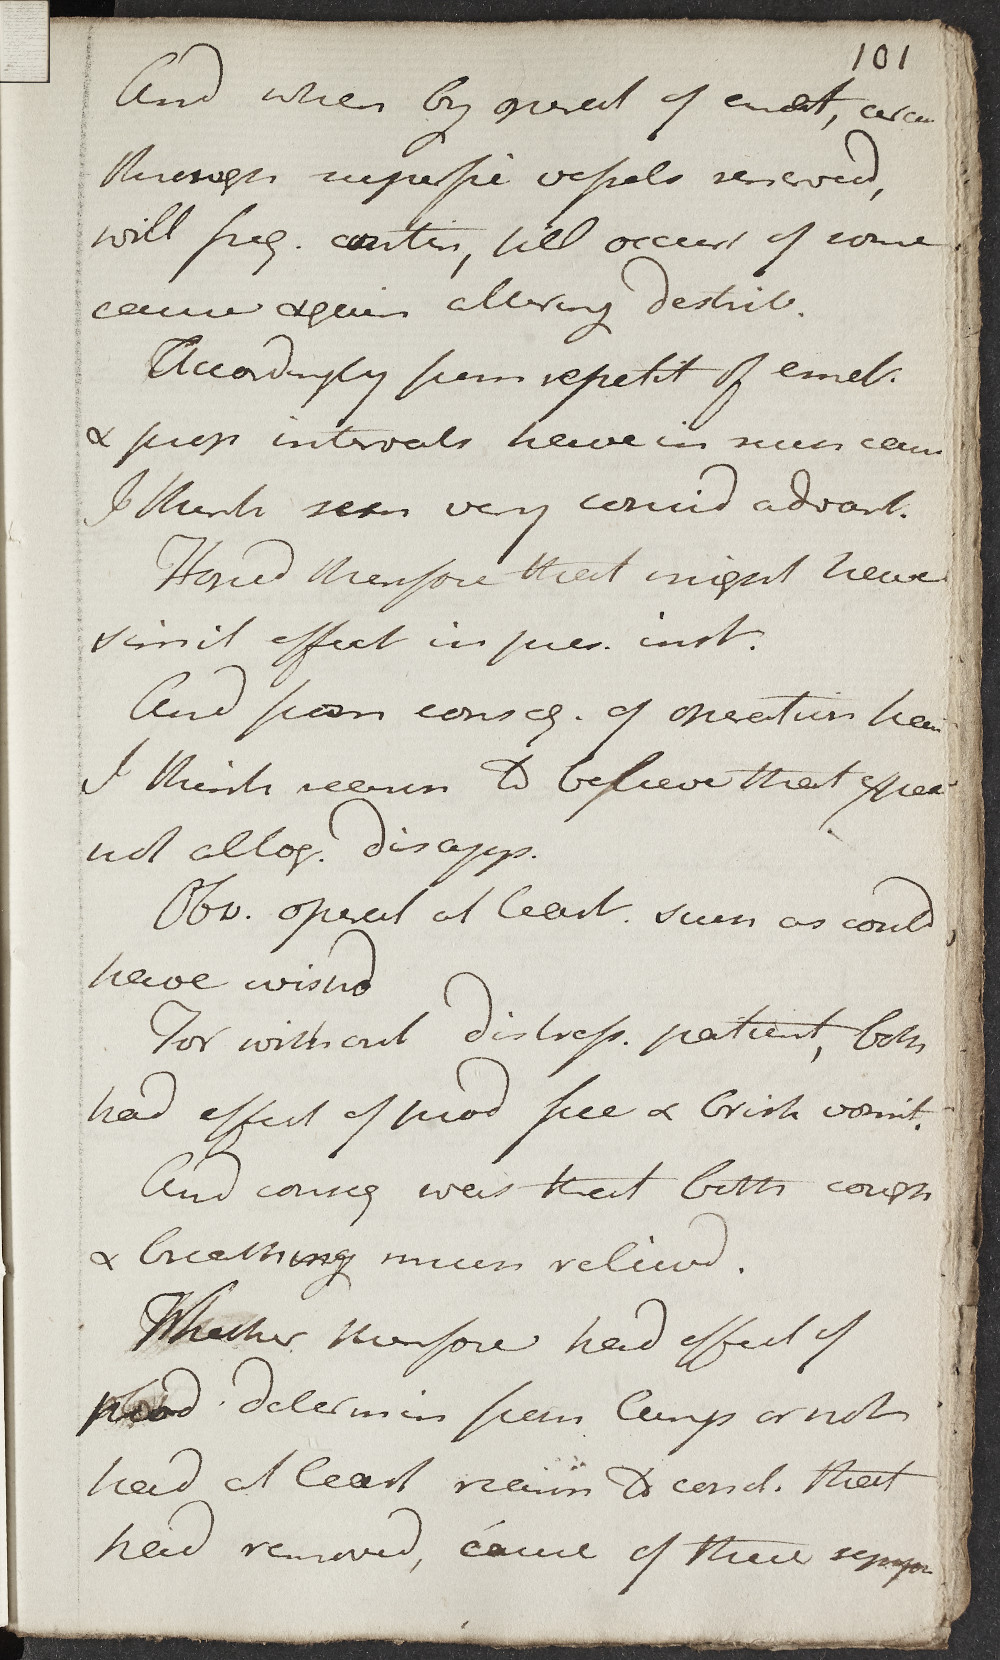 101
And when by operat of emet, circu
through superfic vessels renewed,
will freq. contin, till occurr of some
cause again altering distrib.
Accordingly from repetit of emet.
& prop intervals have in such cases
I think seen very consid advant.
Hoped therefore that might have
simil effect in pres. inst.
And from conseq. of operation have
I think reason to believe that expec
not altog. disapp.
Obv. operat at least. such as could
have wishd
For without distress. patient, both
had effect of prod free & brisk vomit.
And conseq was that both cough
& breathing much relievd.
Whether therefore had effect of
prod determin from lungs or not
had at least reason to concl. that
had removed, cause of these sympt